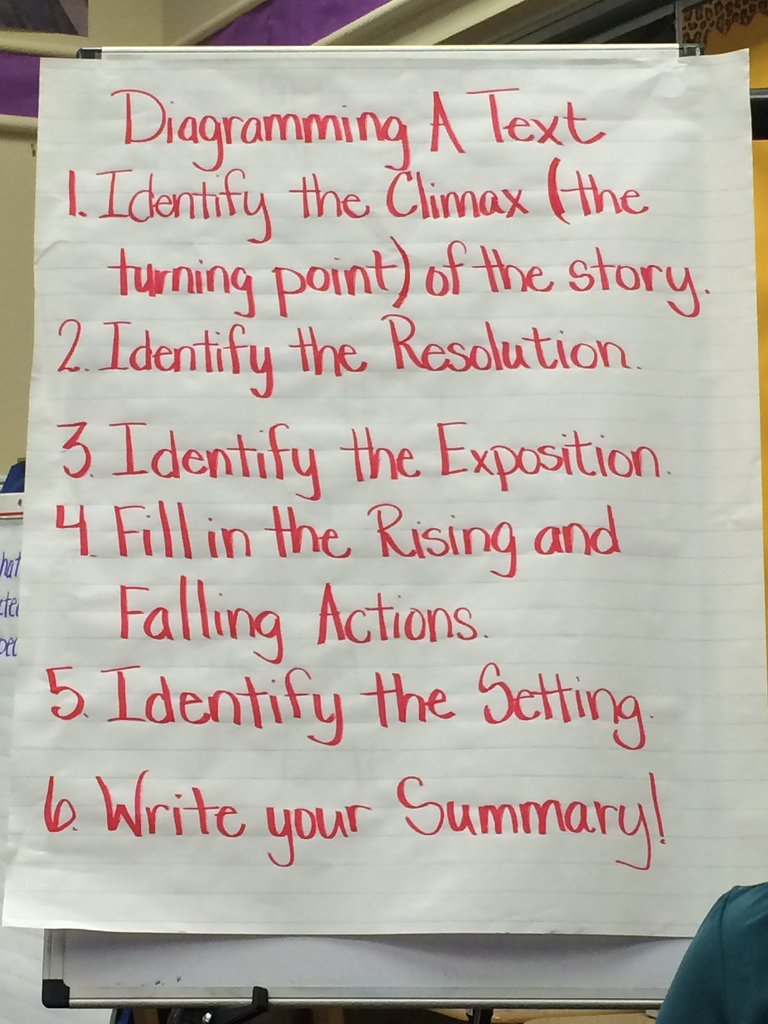 Diagramming A Text
1. Identify the Climax (the
turning point) of the story.
2. Identify the Resolution.
3. Identify the Exposition.
4. Fill in the Rising and
Falling Actions.
5. Identify the Setting.
6. Write your Summary!